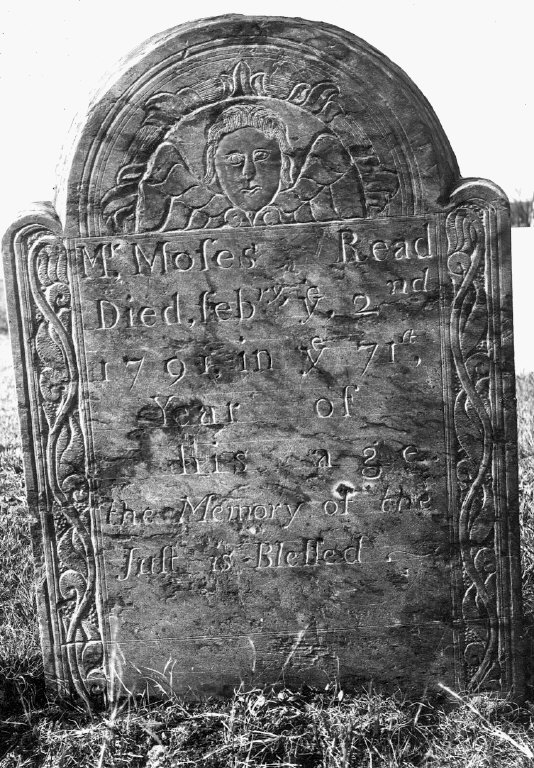 Mr. Moſes Read
Died, feb'ry ye, 2nd
1791, in ye 71st,
Year of
His age
the Memory of the
Juſt is Bleſſed